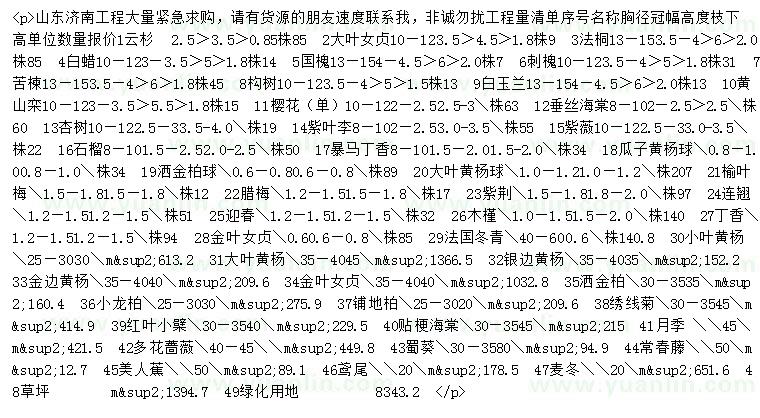 <p>山东济南工程大量紧急求购，请有货源的朋友速度联系我，非诚勿扰工程量清单序号名称胸径冠幅高度枝下
高单位数量报价1云杉　2.5＞3.5＞0.85株85　2大叶女贞10－123.5＞4.5＞1.8株9　3法桐13－153.5－4＞6＞2.0
株85　4白蜡10－123－3.5＞5＞1.8株14　5国槐13－154－4.5＞6＞2.0株7　6刺槐10－123.5－4＞5＞1.8株31　7
苦楝13－153.5－4＞6＞1.8株45　8构树10－123.5－4＞5＞1.5株13　9白玉兰13－154－4.5＞6＞2.0株13　10黄
山栾10－123－3.5＞5.5＞1.8株15　11樱花（单）10－122－2.52.5-3＼株63　12垂丝海棠8－102－2.5＞2.5＼株
60　13杏树10－122.5－33.5-4.0＼株19　14紫叶李8－102－2.53.0-3.5＼株55　15紫薇10－122.5－33.0-3.5＼
株22　16石榴8－101.5－2.52.0-2.5＼株50　17暴马丁香8－101.5－2.01.5-2.0＼株34　18瓜子黄杨球＼0.8－1.
00.8－1.0＼株34　19洒金柏球＼0.6－0.80.6－0.8＼株89　20大叶黄杨球＼1.0－1.21.0－1.2＼株207　21榆叶
梅＼1.5－1.81.5－1.8＼株12　22腊梅＼1.2－1.51.5－1.8＼株17　23紫荆＼1.5－1.81.8－2.0＼株97　24连翘
＼1.2－1.51.2－1.5＼株51　25迎春＼1.2－1.51.2－1.5＼株32　26木槿＼1.0－1.51.5－2.0＼株140　27丁香＼
1.2－1.51.2－1.5＼株94　28金叶女贞＼0.60.6－0.8＼株85　29法国冬青＼40－600.6＼株140.8　30小叶黄杨
＼25－3030＼m&sup2;613.2　31大叶黄杨＼35－4045＼m&sup2;1366.5　32银边黄杨＼35－4035＼m&sup2;152.2
33金边黄杨＼35－4040＼m&sup2;209.6　34金叶女贞＼35－4040＼m&sup2;1032.8　35洒金柏＼30－3535＼m&sup
2;160.4　36小龙柏＼25－3030＼m&sup2;275.9　37铺地柏＼25－3020＼m&sup2;209.6　38绣线菊＼30－3545＼m
&sup2;414.9　39红叶小檗＼30－3540＼m&sup2;229.5　40贴梗海棠＼30－3545＼m&sup2;215　41月季 ＼＼45＼
m&sup2;421.5　42多花蔷薇＼40－45＼＼m&sup2;449.8　43蜀葵＼30－3580＼m&sup2;94.9　44常春藤＼＼50＼m
&sup2;12.7　45美人蕉＼＼50＼m&sup2;89.1　46鸢尾＼＼20＼m&sup2;178.5　47麦冬＼＼20＼m&sup2;651.6　4
8草坪　　　　m&sup2;1394.7　49绿化用地　　　　　8343.2　</p>